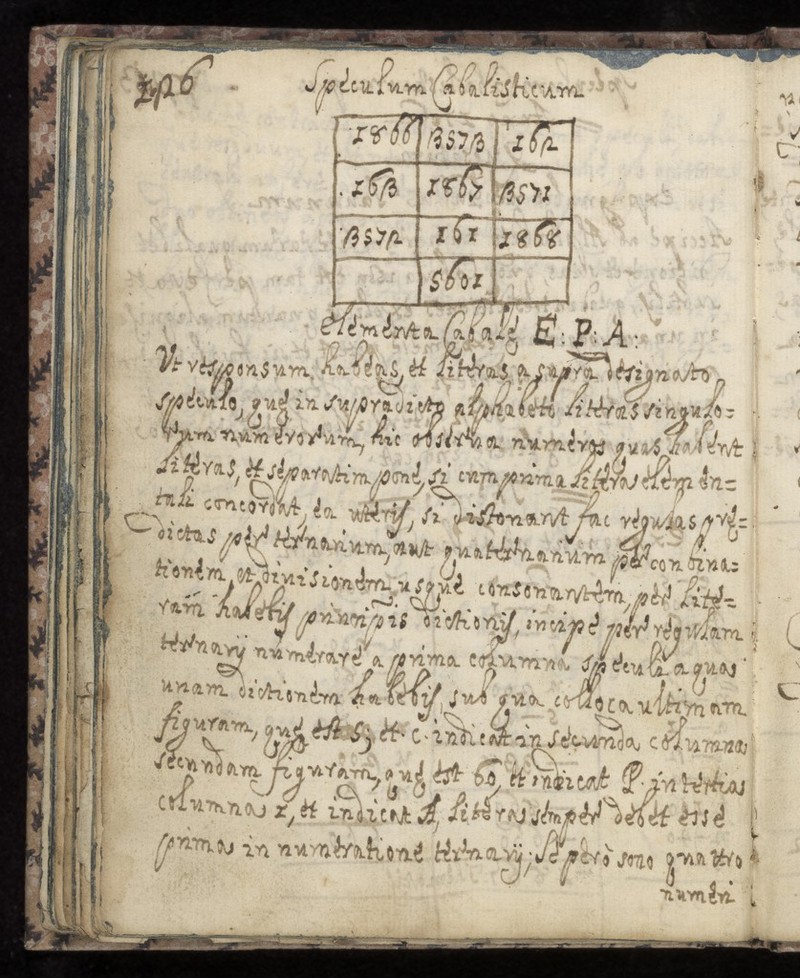 126
Speculum Cabalisticum
1866 3573 162
163 1867 3571
3572 161 1868
5601
elementa Cabalę E: P: A:
Vt responsum habeas, et literas a supra designato
speculo, quę in supradicto alphabeto literas singulo=
rum numerorum, hic obserua numeros quas habent
literas, et separatim pone, si cum prima litera elemen=
tali concordat, ea uteris, si distonant fac regulas prę=
dictas per ternarium, aut quaternarium per conbina=
tionem, et diuisionem usque consonantem, per lite=
ram habebis principis dictionis, incipe per regulam
ternarij numerare a prima columna speculi a qua
unam dictionem habebis, sub qua colloca ultimam
figuram, quę est 5; et c. indicat in secunda columna
secundam figuram, quę est 60, et indicat P. in tertia
columna 1, et indicat A, litera semper debet esse
prima in numeratione ternarij; Se però sono quattro
numeri